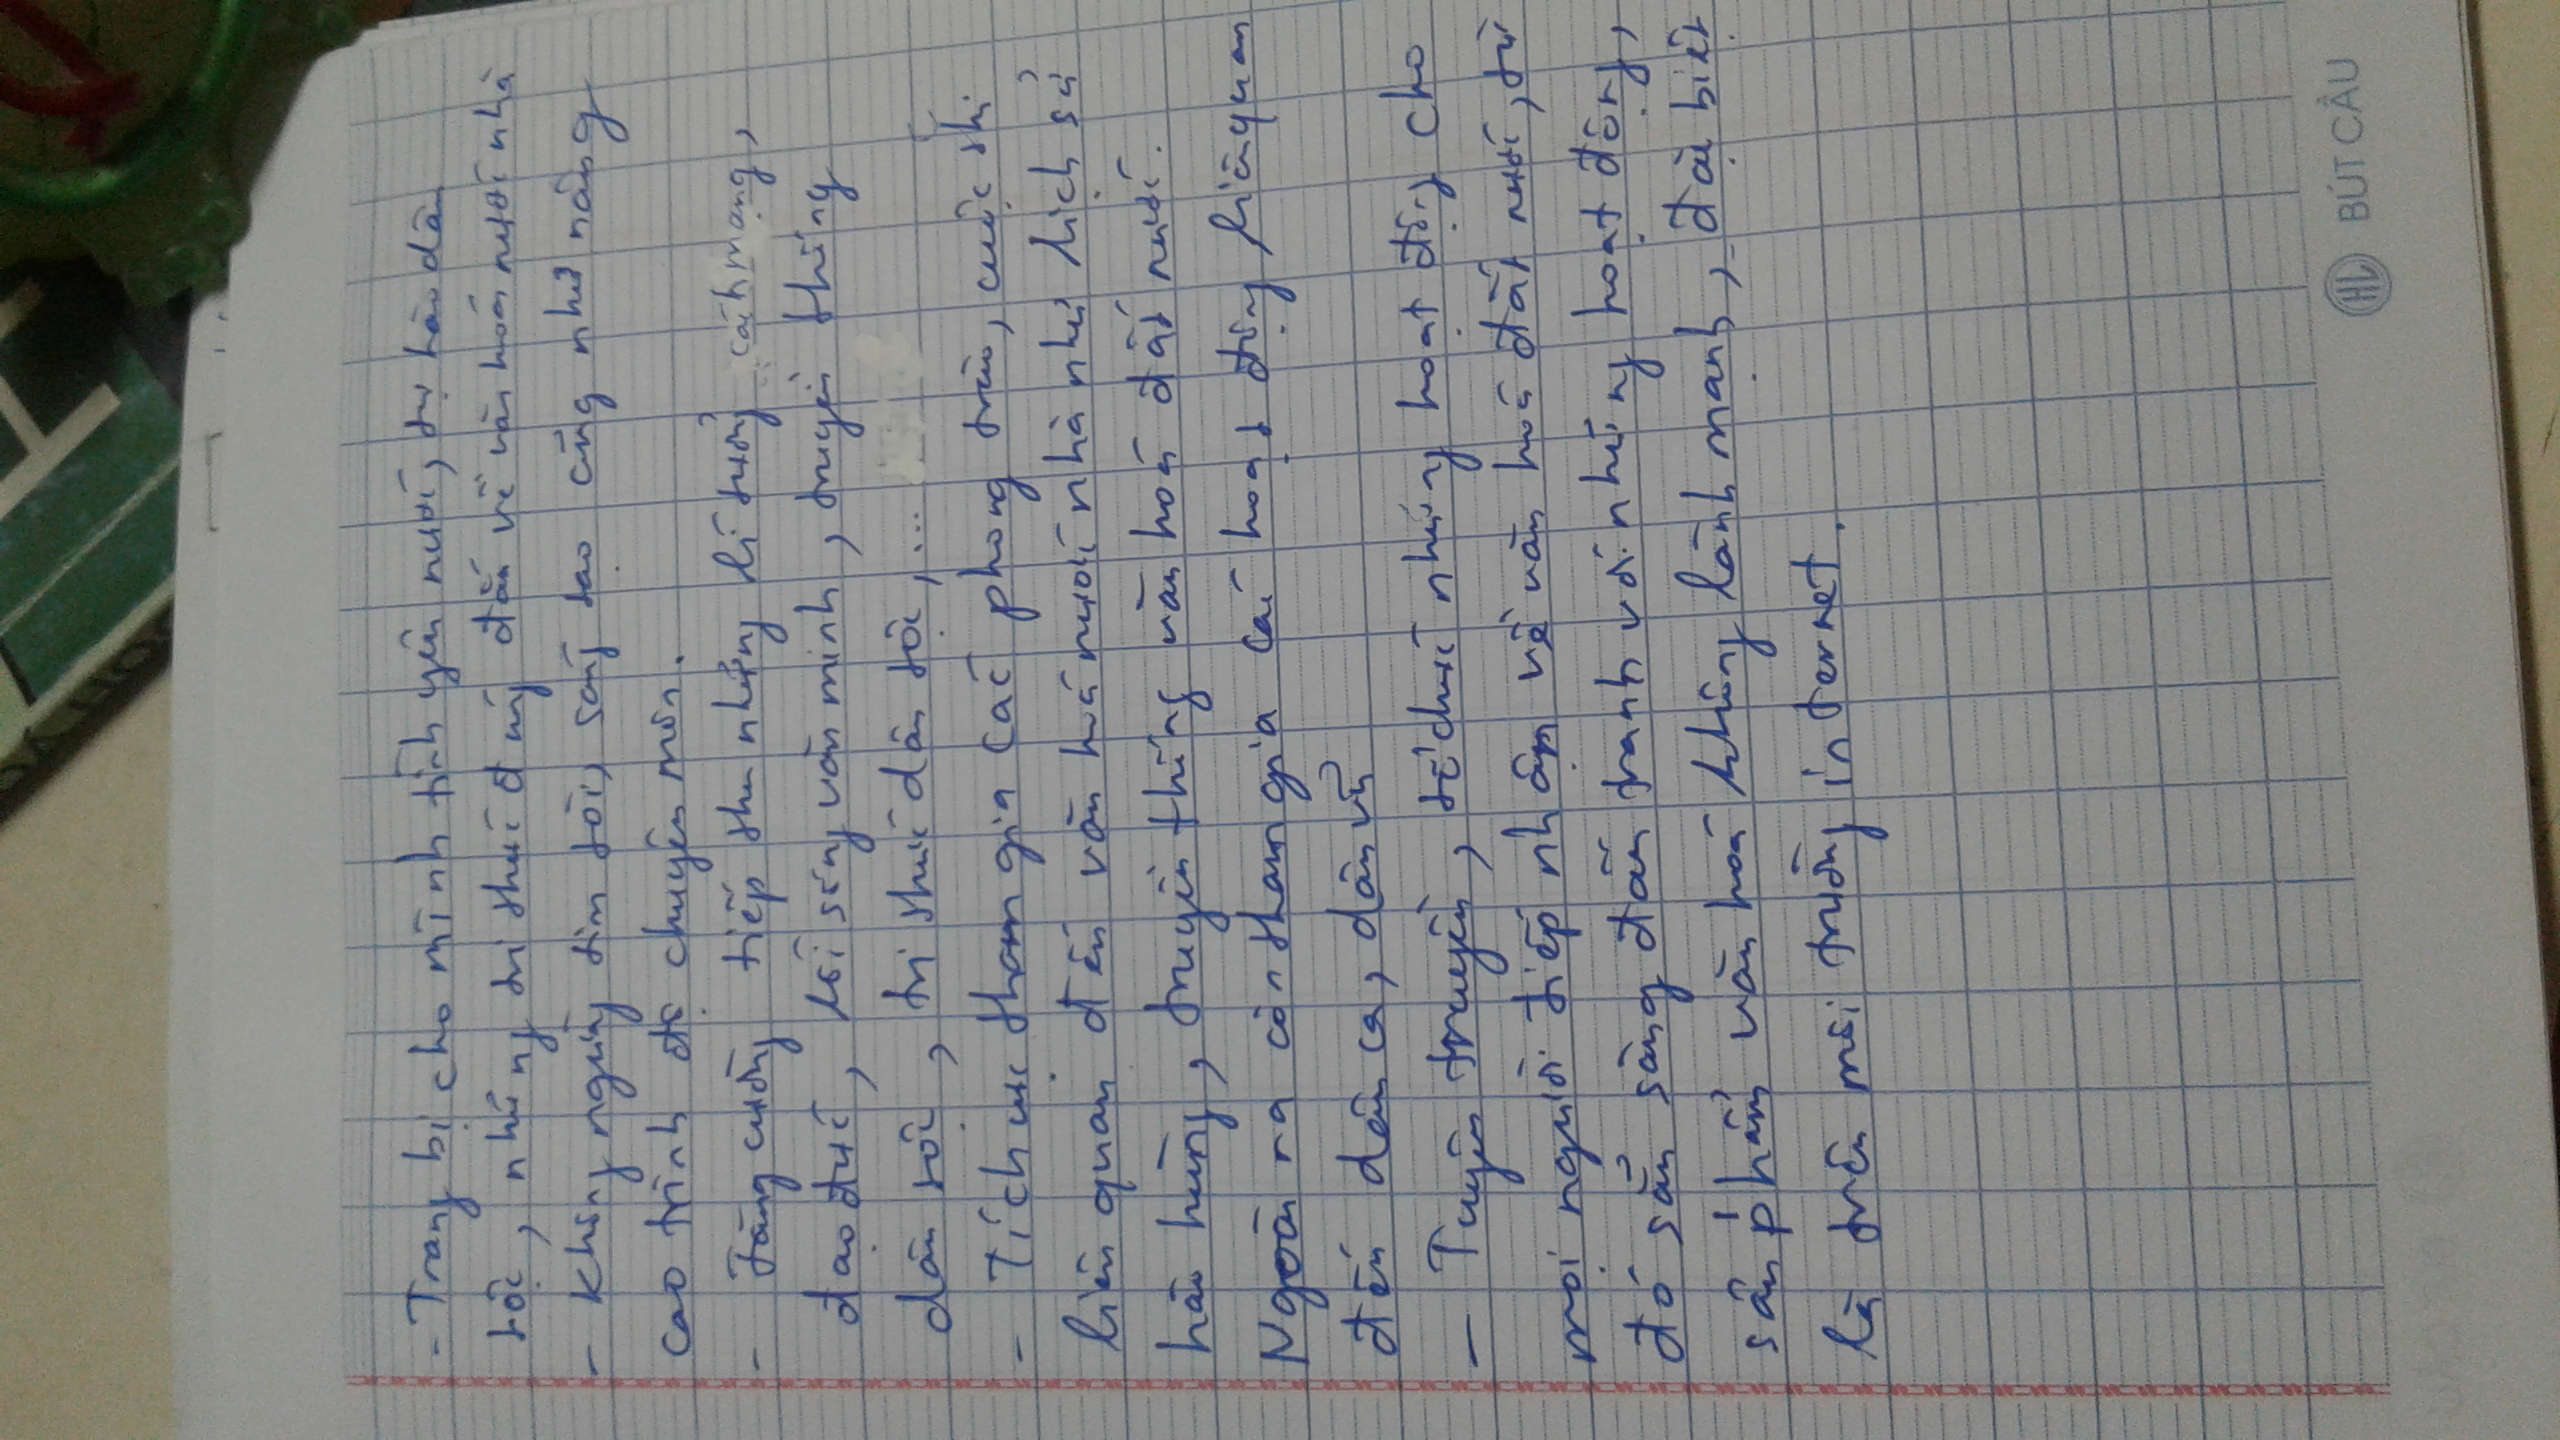 - Trang bị cho mình tình yêu nước, tự hào dân
tộc, những tri thức đúng đắn về văn hoá nước nhà
- Không ngừng tìm tòi, sáng tạo cũng như nâng
cao trình độ chuyên môn.
- Tăng cường tiếp thu những lí tưởng cách mạng,
đạo đức, lối sống văn minh, truyền thống
dân tộc, tri thức dân tộc,...
- Tích cực tham gia các phong trào, cuộc thi
liên quan đến văn hoá nước nhà như lịch sử
hào hùng, truyền thống văn hoá đất nước.
Ngoài ra còn tham gia các hoạt động liên quan
đến dân ca, dân vũ
- Tuyên truyền, tổ chức những hoạt động cho
mọi người tiếp nhậm về văn hoá đất nước, từ
đó sẵn sàng đấu tranh với những hoạt động,
sản phẩm văn hoá không lành mạnh, đặc biệt
là trên môi trường internet.
HL BÚT CẦU